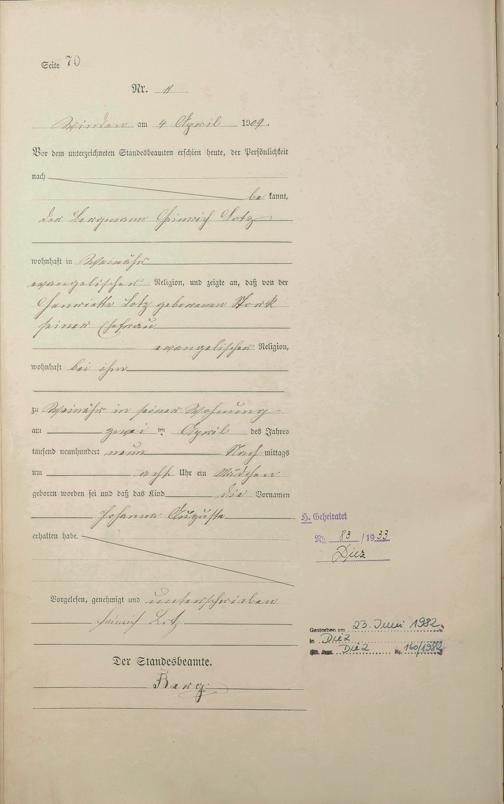 Seite 70
Nr. 11
Winden am 4 April 1909.
Vor dem unterzeichneten Standesbeamten erschien heute, der Persönlichkeit
nach
be kannt,
der Bergmann Heinrich Lotz
wohnhaft in Weinähr
evangelischer Religion, und zeigte an, daß von der
Henriette Lotz geborenen Stork
seiner Ehefrau
evangelischer Religion,
wohnhaft bei ihm
zu Weinähr in seiner Wohnung
am zwei ten April des Jahres
tausend neunhundert neun Nach mittags
um acht Uhr ein Mädchen
geboren worden sei und daß das Kind die Vornamen
Johanna Auguste
erhalten habe.
Vorgelesen, genehmigt und unterschrieben
Heinrich Lotz
Der Standesbeamte.
Berg
H. Geheiratet
Nr. 83 / 1933
Diez
Gestorben am 23. Juni 1982
in Diez
Diez Nr. 160/1982